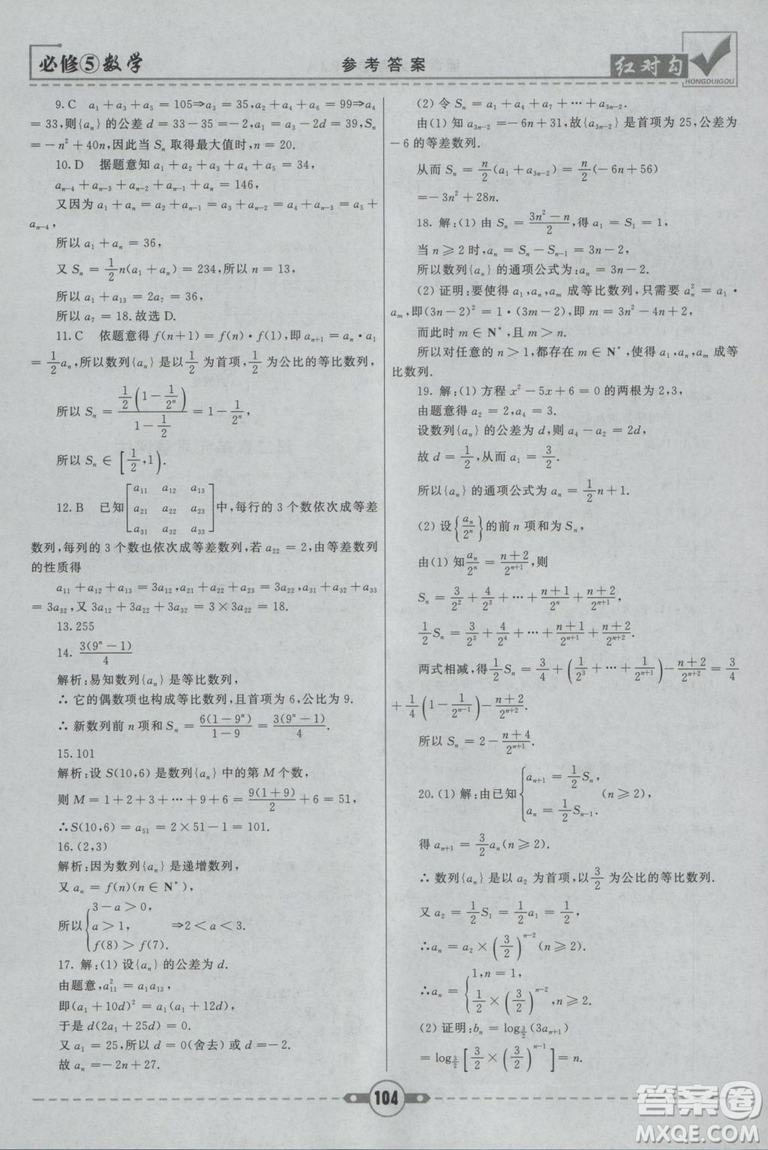 必修⑤数学
参考答案
红对勾
HONGDUIGOU
9. C a₁+a₃+a₅=105⇒a₃=35,a₂+a₄+a₆=99⇒a₄
=33,则{aₙ}的公差 d=33-35=-2,a₁=a₃-2d=39,Sₙ
=-n²+40n,因此当 Sₙ 取得最大值时,n=20.
10. D 据题意知 a₁+a₂+a₃+a₄+a₅=34,
aₙ₋₄+aₙ₋₃+aₙ₋₂+aₙ₋₁+aₙ=146,
又因为 a₁+aₙ=a₂+aₙ₋₁=a₃+aₙ₋₂=a₄+aₙ₋₃=a₅+
aₙ₋₄,
所以 a₁+aₙ=36,
又 Sₙ=1/2 n(a₁+aₙ)=234,所以 n=13,
所以 a₁+a₁₃=2a₇=36,
所以 a₇=18.故选 D.
11. C 依题意得 f(n+1)=f(n)·f(1),即 aₙ₊₁=aₙ·a₁
=1/2 aₙ,所以数列{aₙ}是以 1/2 为首项,1/2 为公比的等比数列,
所以 Sₙ= (1/2(1-1/2ⁿ))/(1-1/2) =1-1/2ⁿ,
所以 Sₙ∈[1/2,1).
12. B 已知[a₁₁ a₁₂ a₁₃
a₂₁ a₂₂ a₂₃
a₃₁ a₃₂ a₃₃]中,每行的 3 个数依次成等差
数列,每列的 3 个数也依次成等差数列,若 a₂₂=2,由等差数列
的性质得
a₁₁+a₁₂+a₁₃=3a₁₂,a₂₁+a₂₂+a₂₃=3a₂₂,a₃₁+a₃₂+a₃₃
=3a₃₂,又 3a₁₂+3a₂₂+3a₃₂=3×3a₂₂=18.
13. 255
14. 3(9ⁿ-1)/4
解析:易知数列{aₙ}是等比数列,
∴ 它的偶数项也构成等比数列,且首项为 6,公比为 9.
∴ 新数列前 n 项和 Sₙ=6(1-9ⁿ)/(1-9)=3(9ⁿ-1)/4.
15. 101
解析:设 S(10,6)是数列{aₙ}中的第 M 个数,
则 M=1+2+3+…+9+6=9(1+9)/2+6=51,
∴S(10,6)=a₅₁=2×51-1=101.
16. (2,3)
解析:因为数列{aₙ}是递增数列,
又 aₙ=f(n)(n∈N*),
所以{3-a>0,
a>1, ⇒2<a<3.
f(8)>f(7)
17. 解:(1)设{aₙ}的公差为 d.
由题意,a₁₁²=a₁a₁₃,
即(a₁+10d)²=a₁(a₁+12d).
于是 d(2a₁+25d)=0.
又 a₁=25,所以 d=0(舍去)或 d=-2.
故 aₙ=-2n+27.
(2)令 Sₙ=a₁+a₄+a₇+…+a₃ₙ₋₂.
由(1)知 a₃ₙ₋₂=-6n+31,故{a₃ₙ₋₂}是首项为 25,公差为
-6 的等差数列.
从而 Sₙ=n/2(a₁+a₃ₙ₋₂)=n/2(-6n+56)
=-3n²+28n.
18. 解:(1)由 Sₙ=(3n²-n)/2,得 a₁=S₁=1,
当 n≥2 时,aₙ=Sₙ-Sₙ₋₁=3n-2,
所以数列{aₙ}的通项公式为:aₙ=3n-2.
(2)证明:要使得 a₁,aₙ,aₘ 成等比数列,只需要 aₙ²=a₁·
aₘ,即(3n-2)²=1·(3m-2),即 m=3n²-4n+2,
而此时 m∈N*,且 m>n.
所以对任意的 n>1,都存在 m∈N*,使得 a₁,aₙ,aₘ 成等
比数列.
19. 解:(1)方程 x²-5x+6=0 的两根为 2,3,
由题意得 a₂=2,a₄=3.
设数列{aₙ}的公差为 d,则 a₄-a₂=2d,
故 d=1/2,从而 a₁=3/2.
所以{aₙ}的通项公式为 aₙ=1/2 n+1.
(2)设{aₙ/2ⁿ}的前 n 项和为 Sₙ,
由(1)知 aₙ/2ⁿ=(n+2)/2ⁿ⁺¹,则
Sₙ=3/2²+4/2³+…+(n+1)/2ⁿ+(n+2)/2ⁿ⁺¹,
1/2 Sₙ=3/2³+4/2⁴+…+(n+1)/2ⁿ⁺¹+(n+2)/2ⁿ⁺².
两式相减,得 1/2 Sₙ=3/4+(1/2³+…+1/2ⁿ⁺¹)-(n+2)/2ⁿ⁺²=3/4
+1/4(1-1/2ⁿ⁻¹)-(n+2)/2ⁿ⁺².
所以 Sₙ=2-(n+4)/2ⁿ⁺¹.
20. (1)解:由已知{aₙ₊₁=1/2 Sₙ,
aₙ=1/2 Sₙ₋₁.(n≥2),
得 aₙ₊₁=3/2 aₙ(n≥2).
∴ 数列{aₙ}是以 a₂ 为首项,以 3/2 为公比的等比数列.
又 a₂=1/2 S₁=1/2 a₁=1/2,
∴aₙ=a₂×(3/2)ⁿ⁻²(n≥2).
∴aₙ={1,n=1,
1/2×(3/2)ⁿ⁻²,n≥2.
(2)证明:bₙ=log₃/₂(3aₙ₊₁)
=log₃/₂[3/2×(3/2)ⁿ⁻¹]=n.
104
答案圈
MXQE.COM